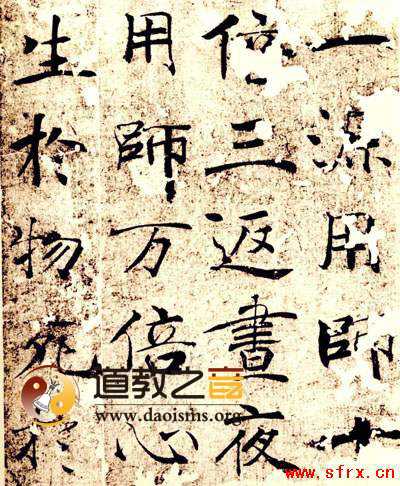 一源用師十
倍三返晝夜
用師万倍心
生於物死於
道教之音
www.daoisms.org
www.sfrx.cn